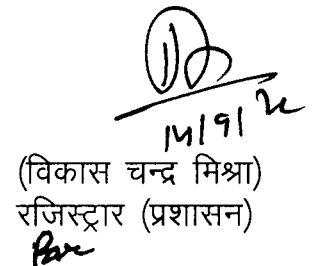 14/9/22
(विकास चन्द्र मिश्रा)
रजिस्ट्रार (प्रशासन)